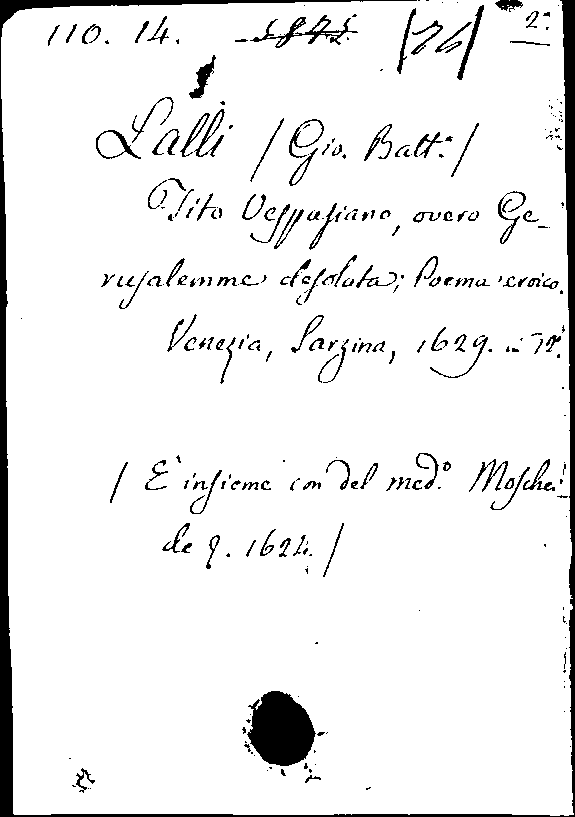 110. 14. 5872. /76/ 2ª
Lalli / Gio. Batt.ª /
Tito Vespasiano, overo Ge-
rusalemme desolata; Poema eroico.
Venezia, Sarzina, 1629. in 12.º
/ E' insieme con del med.º Moschei-
de &. 1624. /